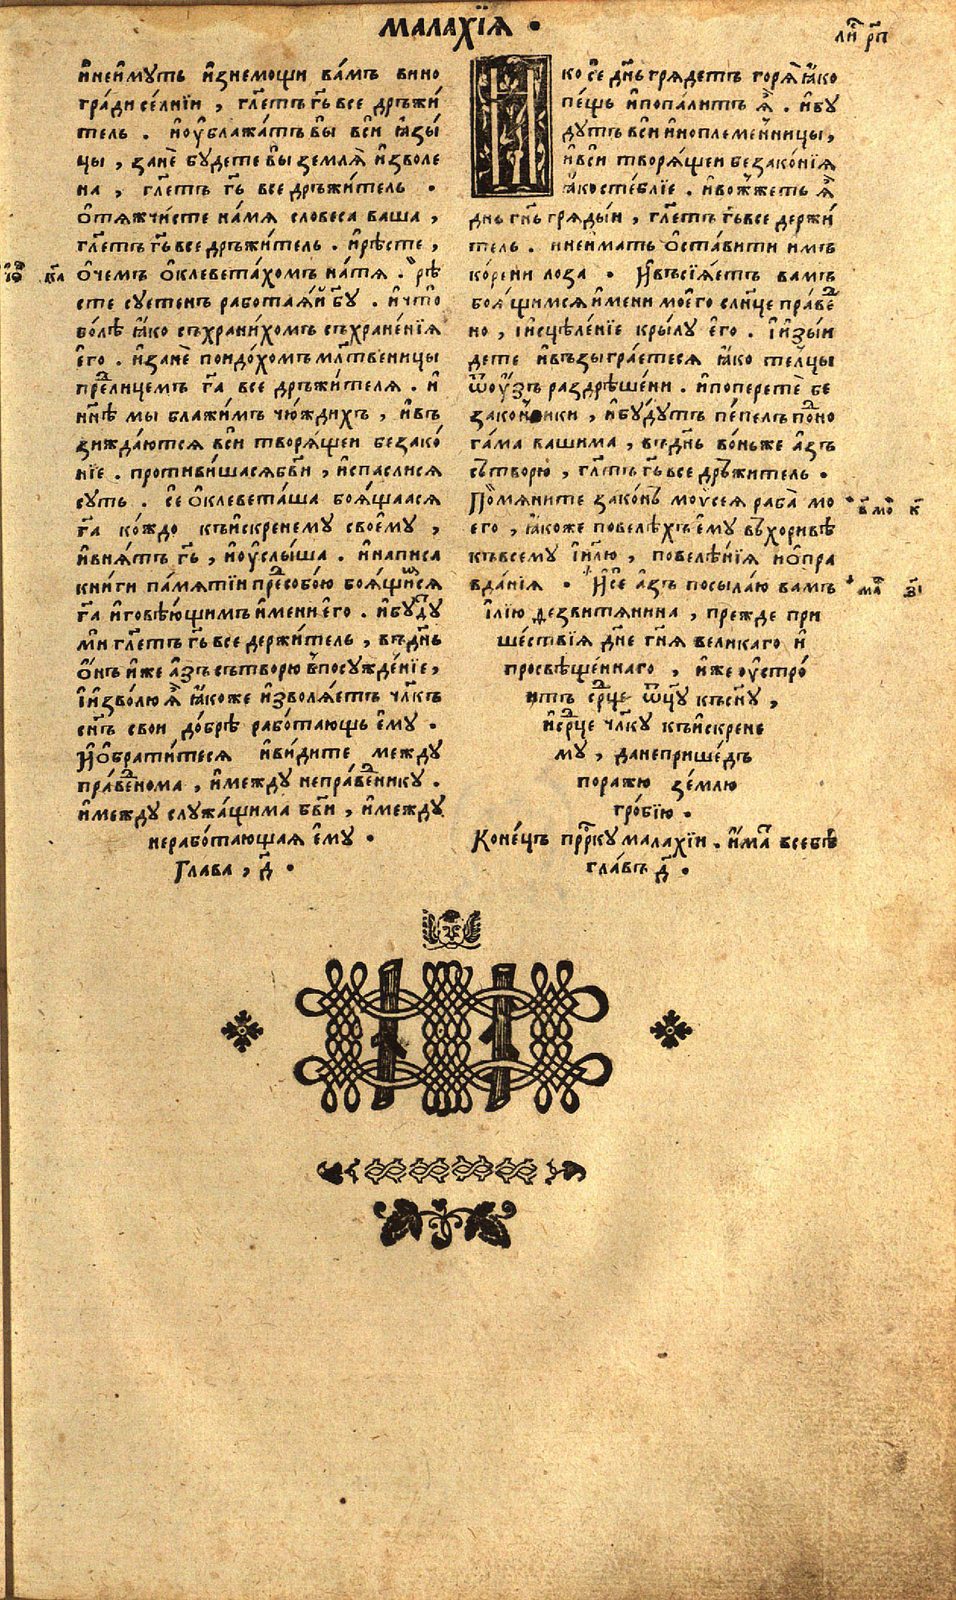 МАЛАХЇѦ ·
ли҇ рп҃
и҆неи҆мꙋть и҆знемощи ва́мъ вино
гради се́лнїи , гл҃етъ гь҃ все дръжи́
тель . и҆оу҆блажа́тъ вы̀ вси̑ ꙗ҆зы́
цы , занѐ бꙋдете вы̀ землѧ̀ и҆зволе
на , гл҃етъ гь҃ вседръжи́тель ·
Ѻ҆тѧжчи́сте на́мѧ словеса ваша ,
гл҃етъ гь҃ все дръжи́тель . и҆рѣ́сте ,
ѻ҆чемъ ѻ҆клевета́хомъ на́тѧ . рѣ́
сте сꙋетенъ работаѧ́й бꙋ҃ . и҆что̀
бо́лѣ ꙗ҆ко съхрани́хомъ съхране́нїѧ
є҆го̀ . и҆занѐ поидо́хомъ мл҃твеницы
пре́лицемъ га҃ все дръжи́телѧ . и҆
нн҃ѣ мы блажи́мъ чю́ждихъ , и҆въ
зижда́ютсѧ вси̑ творѧ́щеи безако́
нїе . проти́вишасѧбв҃и , и҆спасли́сѧ
сꙋть . се́ ѻ҆клевета́ша боѧ́щаасѧ
га҃ ко́ждо къи́скренемꙋ своемꙋ̀ ,
и҆внѧ́тъ гь҃ , и҆оу҆слы́ша . и҆написа
кни́ги па́мѧтїи пре́собо́ю боѧ́щи́мсѧ
га҃ и҆говѣ́ющимъ и҆мени є҆го . и҆бꙋ́дꙋ
мѝ гл҃етъ гь҃ все держи́тель , въдн҃ь
ѻ҆́нъ и҆́же а҆́зъ сътворю̀ в̾посꙋжде́нїе ,
і҆и҆зво́лю ѧ҆̀ ꙗ҆́коже и҆зволѧ́етъ чл҃къ
сн҃ъ сво́и до́брѣ рабо́тающь є҆мꙋ̀ ·
И҆ѻ҆брати́тесѧ и҆ви́дите междꙋ
пра́ве́нома , и҆междꙋ непра́ве́никꙋ .
и҆междꙋ слꙋжа́щима бв҃и , и҆междꙋ
нерабо́тающаѧ є҆мꙋ ·
Глава , д҃ ·
ко се̑ дн҃ь грѧде́тъ горѧ̀ ꙗ҆́ко
пе́щь и҆попали́тъ ѧ҆̀ . и҆бꙋ́
дꙋтъ вси̑ и҆ноплеме́нницы ,
и҆вси̑ творѧ́щеи безако́нїѧ
ꙗ҆́ко сте́блїе . и҆вож̾же́тъ ѧ҆̀
днь гн҃ь грѧды́и , гл҃етъ гь҃ все держи́
тель . и҆неи҆мать ѻ҆ста́вити и҆мъ
ко́рени лоза · И҆въсїѧ́етъ вамъ
боѧ́щимсѧ и҆мени мое҆го̀ сл҃нце пра́ве́
но , і҆исцѣле́нїе кры́лꙋ є҆го . і҆и҆зы́и
дете и҆възыгра́етесѧ ꙗ҆ко телцы̀
ѿоу҆́зъ раздрѣше́ни . и҆попере́те бе
зако́нники , и҆бꙋ́дꙋтъ пе́пелъ по́но
га́ма вашима , въдн҃ь во́ньже а҆́зъ
сътворю , гл҃етъ гь҃ все дръ́житель ·
Помѧни́те зако́нъ моѷсе́ѧ раба̀ мо
его , ꙗ҆́коже повелѣ́хъ є҆мꙋ въхори́вѣ
къвсемꙋ і҆и҃лю , повелѣ́нїѧ и҆ѻ҆пра
вда́нїѧ · И҆се̑ а҆́зъ посыла́ю вамъ
і҆лїю̀ ѳезвитѧнина , прежде при
ше́ствїѧ дн҃е гн҃ѧ великаго и҆
просвѣще́ннаго , и҆́же оу҆стро́
итъ ср҃це ѿц҃ꙋ късн҃ꙋ ,
и҆ср҃це чл҃кꙋ къи́скрене
мꙋ , данеприше́дъ
поражю зе́млю
гро́бїю ·
Коне́цъ пр҃ркꙋ малахїи . и҆ма́ всебѣ
гла́въ д҃ ·